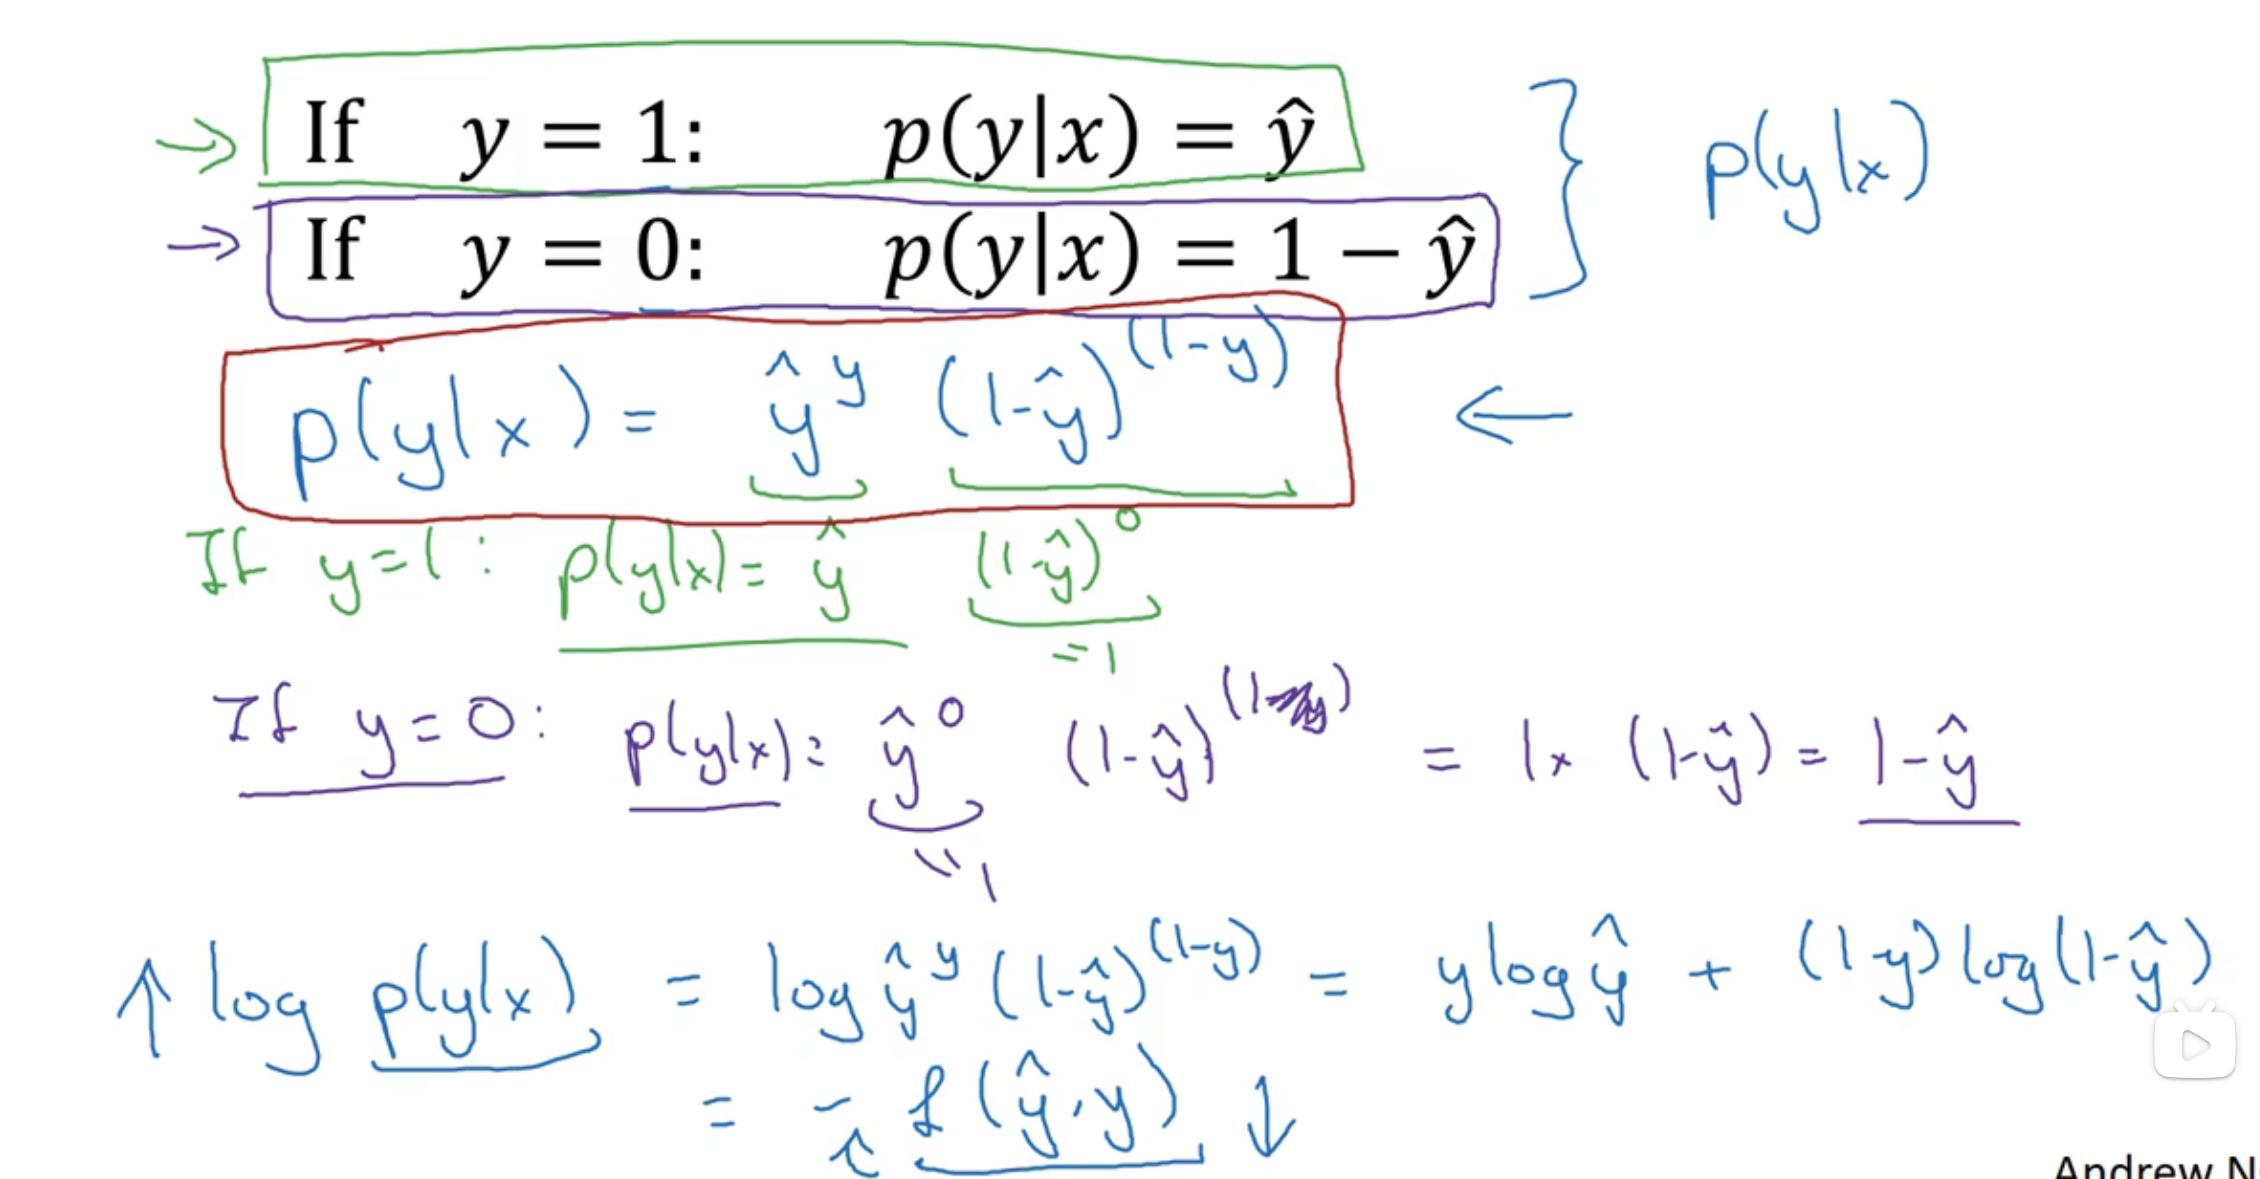 If y = 1: p(y|x) = ŷ
If y = 0: p(y|x) = 1 − ŷ
p(y|x)
p(y|x) = ŷ^y (1-ŷ)^(1-y) ←
If y=1: p(y|x) = ŷ (1-ŷ)^0
=1
If y=0: p(y|x) = ŷ^0 (1-ŷ)^(1-y) = 1 × (1-ŷ) = 1-ŷ
=1
↑ log p(y|x) = log ŷ^y (1-ŷ)^(1-y) = y log ŷ + (1-y) log(1-ŷ)
= - ℒ(ŷ,y) ↓
Andrew N